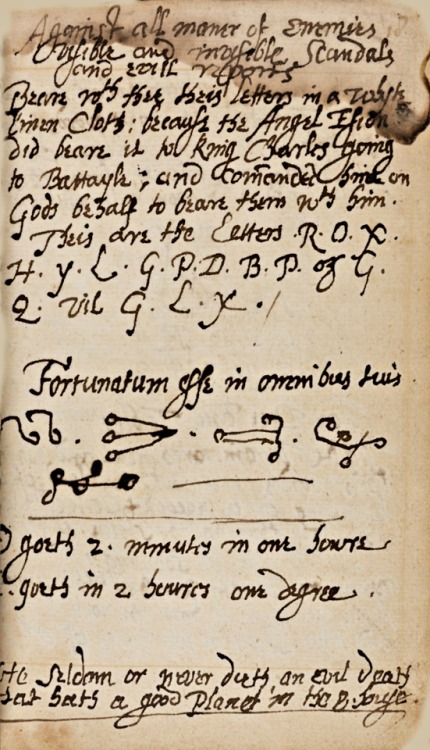 Against all maner of Enemies
Visible and invisible Scandals
and evill reports
Beare wth thee theis letters in a whyte
linen Cloth; because the Angel
did beare it to King Charles going
to Battayle; and Comanded him on
Gods behalf to beare them wth him.
Theis are the Letters. R. O. X.
H. y. L. G. P. D. B. P. G.
Q. vil G. L. X.
Fortunatum esse in omnibus tuis
goeth 2. minutes in one howre
goeth in 2 howres one degree.
He seldom or never dieth an evil death
that hath a good Planet in the 8. house.